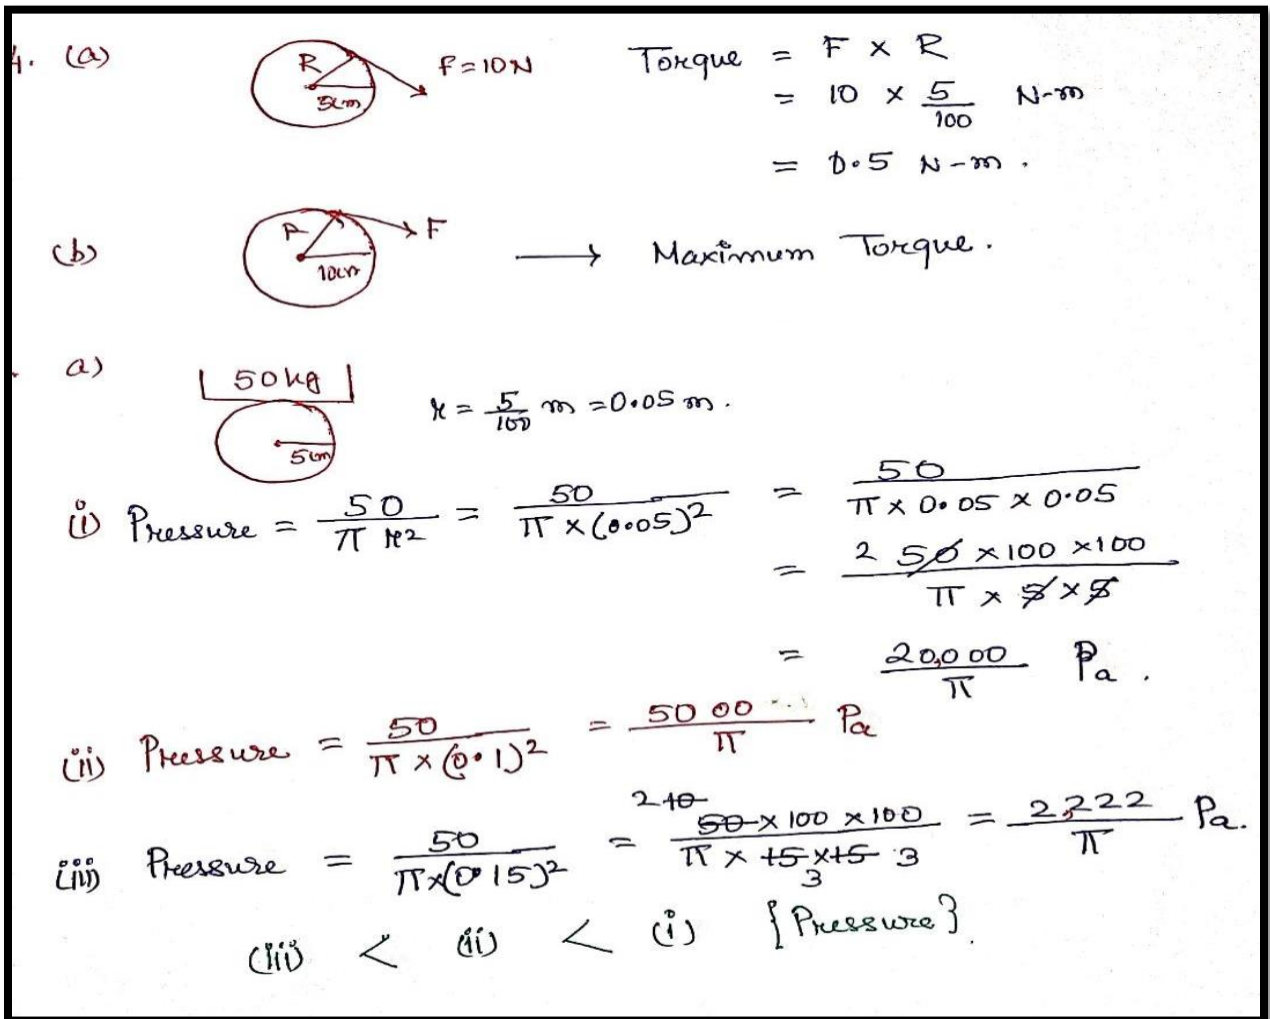 4. (a) R 5cm F=10N Torque = F × R
= 10 × 5/100 N-m
= 0.5 N-m.
(b) R 10cm F → Maximum Torque.
a) 50kg 5cm r = 5/100 m = 0.05 m.
(i) Pressure = 50/πr² = 50/π×(0.05)² = 50/π×0.05×0.05
= 2 50×100×100/π×5×5
= 20,000/π Pa.
(ii) Pressure = 50/π×(0.1)² = 5000/π Pa
(iii) Pressure = 50/π×(0.15)² = 2 10 50×100×100/π×15×15 3 3 = 2,222/π Pa.
(iii) < (ii) < (i) {Pressure}.